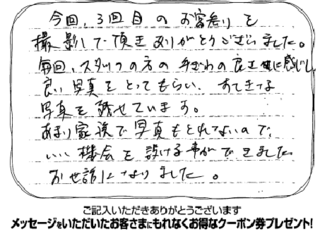 今回、3回目のお宮参りを
撮影して頂きありがとうございました。
毎回、スタッフの方の手ぎわの良さに感じし
良い写真をとってもらい、すてきな
写真を残せています。
あまり家族で写真もとれないので、
いい機会を設ける事ができました
お世話になりました。
ご記入いただきありがとうございます
メッセージをいただいたお客さまにもれなくお得なクーポン券プレゼント!